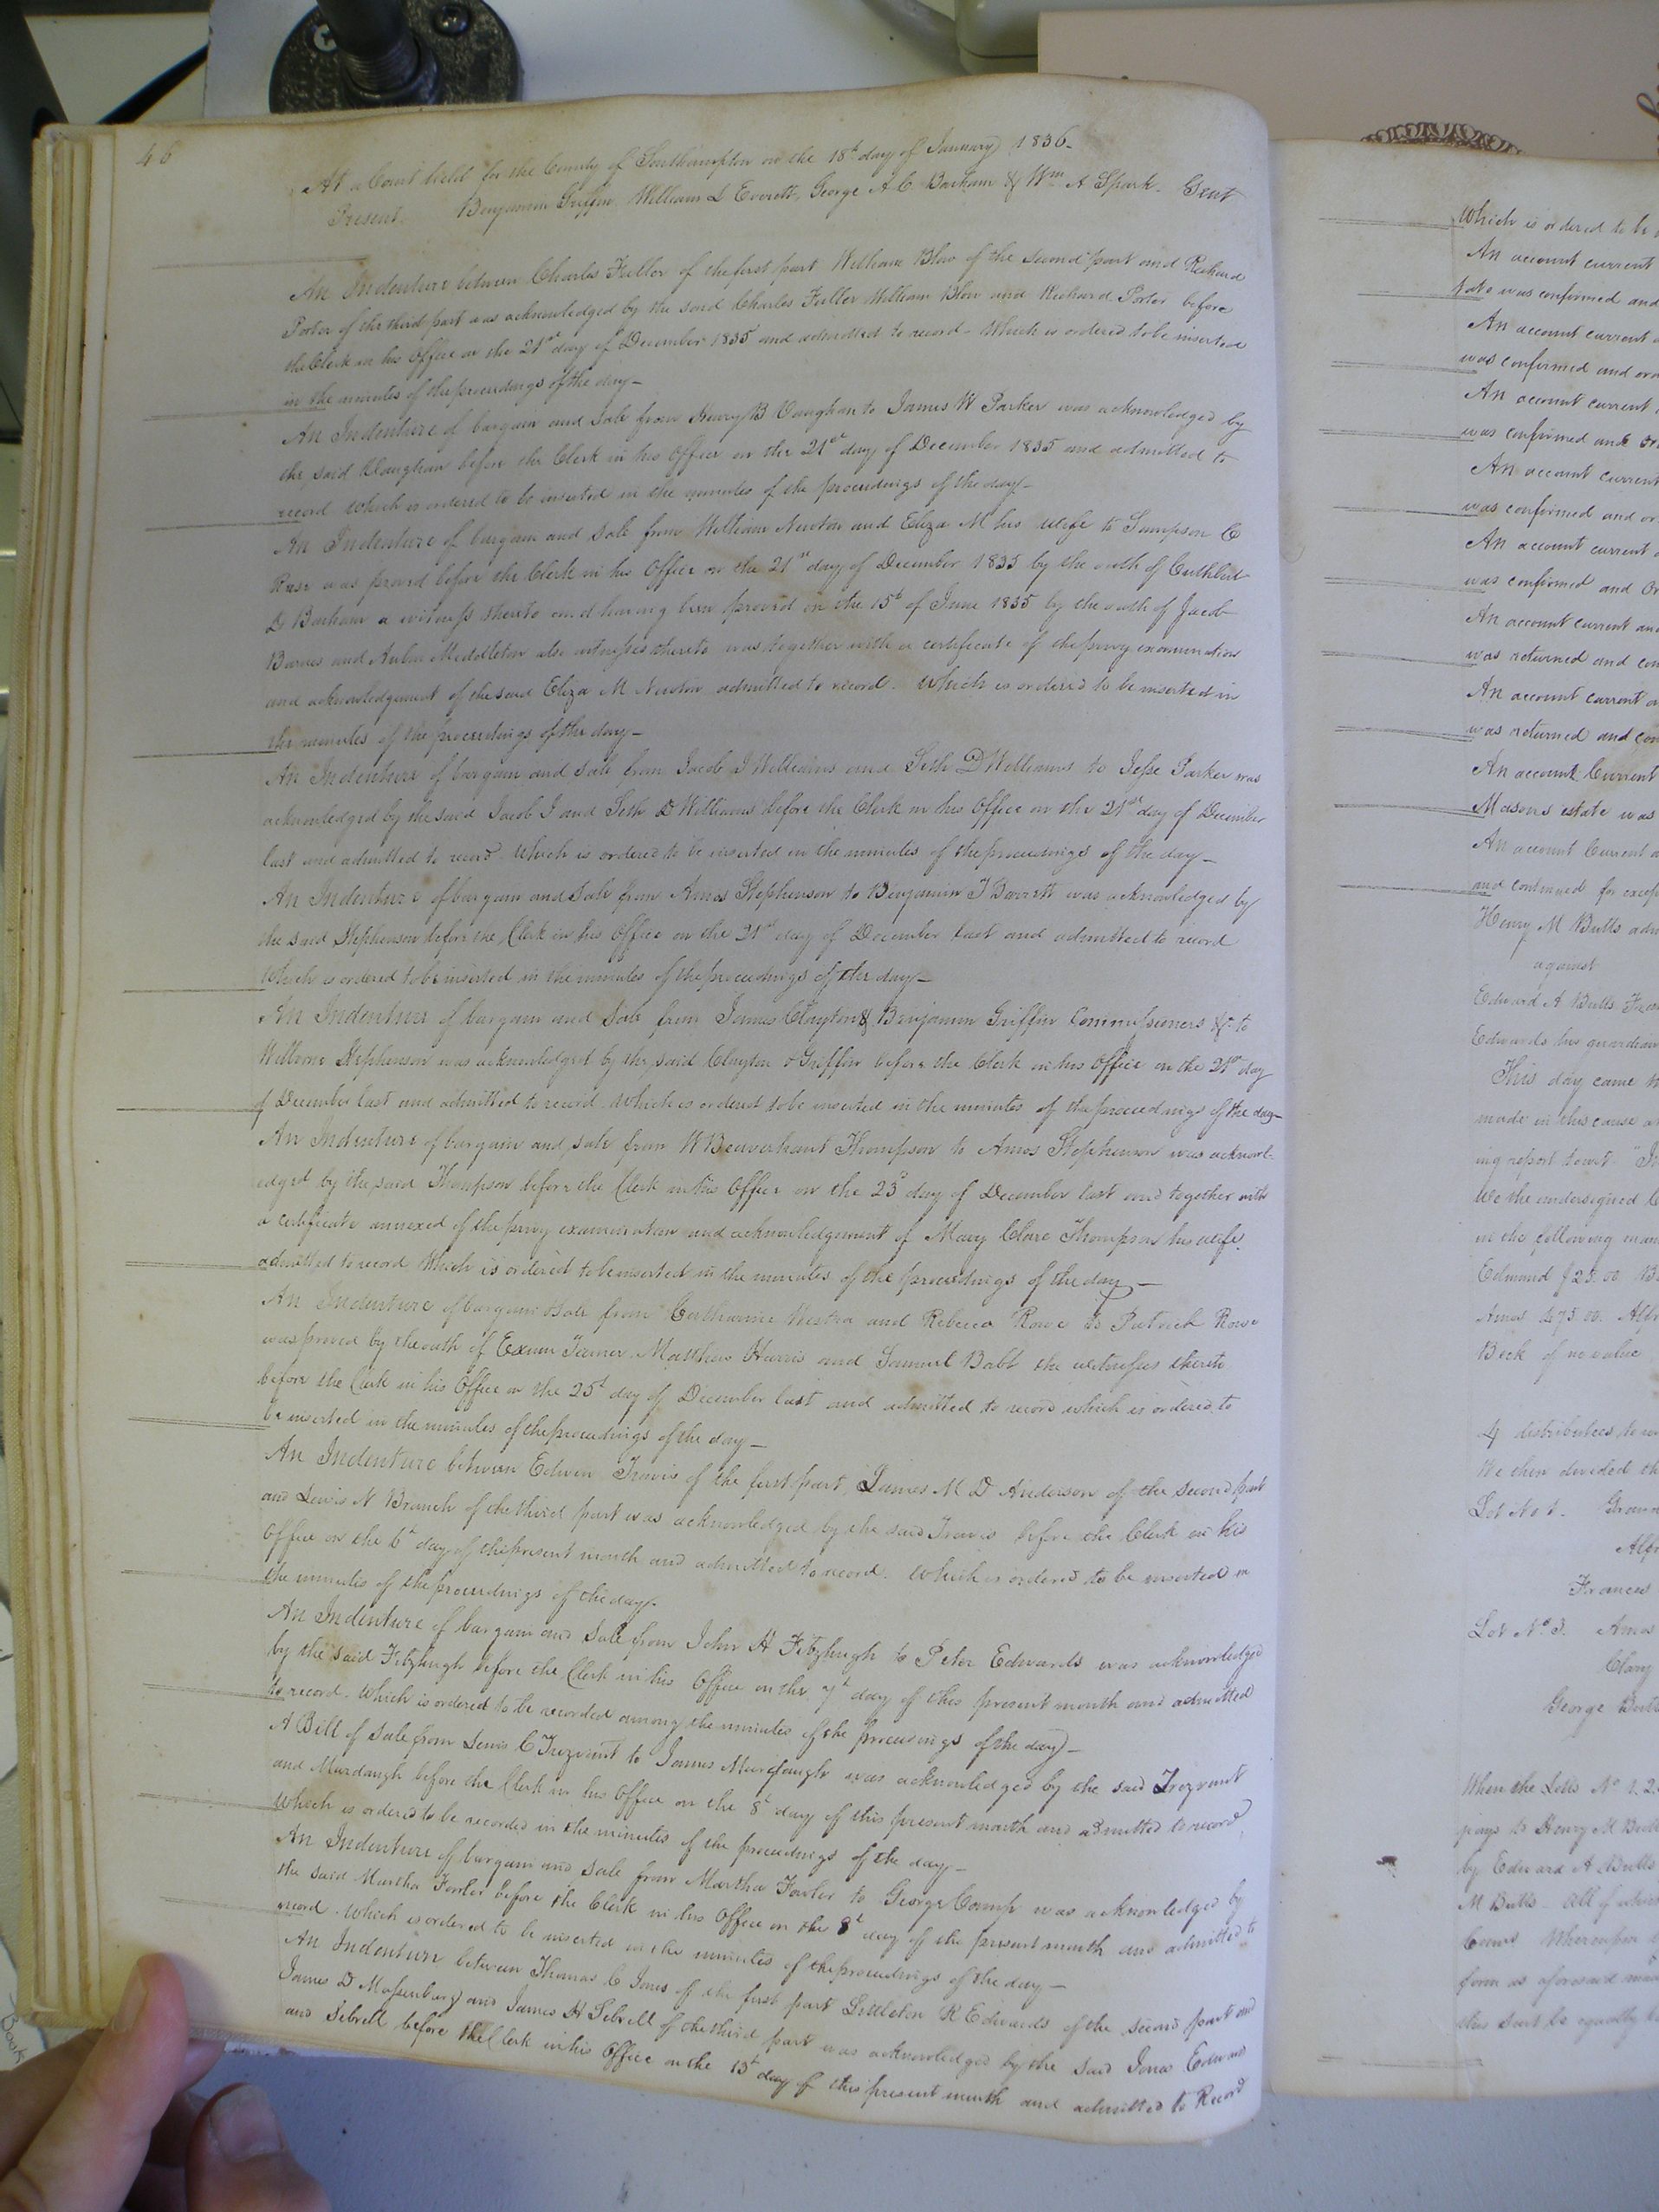 46
At a Court held for the County of Southampton on the 18th day of January 1836.
Present. Benjamin Griffin, William L Everett, George A C Barham & Wm A Spark. Gent
An Indenture between Charles Fuller of the first part William Blow of the second part and Richard
Porter of the third part was acknowledged by the said Charles Fuller William Blow and Richard Porter before
the Clerk in his Office on the 21st day of December 1835 and admitted to record - Which is ordered to be inserted
in the minutes of the proceedings of the day -
An Indenture of bargain and sale from Henry B Vaughan to James W Parker was acknowledged by
the said Vaughan before the Clerk in his Office on the 21st day of December 1835 and admitted to
record which is ordered to be inserted in the minutes of the proceedings of the day -
An Indenture of bargain and sale from William Newton and Eliza M his wife to Sampson C
Reese was proved before the Clerk in his Office on the 21st day of December 1835 by the oath of Cuthbert
D Barham a witness thereto and having been proved on the 15th of June 1835 by the oath of Jacob
Barnes and Middleton also witnesses thereto was together with a certificate of the privy examination
and acknowledgement of the said Eliza M Newton admitted to record. Which is ordered to be inserted in
the minutes of the proceedings of the day -
An Indenture of bargain and sale from Jacob J Williams and Seth D Williams to Jesse Parker was
acknowledged by the said Jacob J and Seth D Williams before the Clerk in his Office on the 21st day of December
last and admitted to record. Which is ordered to be inserted in the minutes of the proceedings of the day -
An Indenture of bargain and sale from Amos Stephenson to Benjamin T Barrett was acknowledged by
the said Stephenson before the Clerk in his Office on the 21st day of December last and admitted to record
Which is ordered to be inserted in the minutes of the proceedings of the day -
An Indenture of bargain and sale from James Clayton & Benjamin Griffin Commissioners &c to
Stephenson was acknowledged by the said Clayton & Griffin before the Clerk in his Office on the 21st day
of December last and admitted to record. Which is ordered to be inserted in the minutes of the proceedings of the day -
An Indenture of bargain and sale from W Beaverhant Thompson to Amos Stephenson was acknowl-
edged by the said Thompson before the Clerk in his Office on the 23d day of December last and together with
a certificate annexed of the privy examination and acknowledgement of Mary Clare Thompson his wife.
admitted to record Which is ordered to be inserted in the minutes of the proceedings of the day -
An Indenture of bargain & sale from Catharine Westra and Rebecca Rowe to Patrick Rowe
was proved by the oath of Exum Turner, Matthew Harris and Samuel Babb the witnesses thereto
before the Clerk in his Office on the 25th day of December last and admitted to record which is ordered to
be inserted in the minutes of the proceedings of the day -
An Indenture between Edwin Travis of the first part, James M D Anderson of the second part
and Lewis N Branch of the third part was acknowledged by the said Travis before the Clerk in his
Office on the 6th day of the present month and admitted to record. Which is ordered to be inserted in
the minutes of the proceedings of the day.
An Indenture of bargain and sale from John H Fitzhugh to Peter Edwards was acknowledged
by the said Fitzhugh before the Clerk in his Office on the 7th day of this present month and admitted
to record. Which is ordered to be recorded among the minutes of the proceedings of the day -
A Bill of sale from Lewis C Trezvant to James Murdaugh was acknowledged by the said Trezvant
and Murdaugh before the Clerk in his Office on the 8th day of this present month and admitted to record
Which is ordered to be recorded in the minutes of the proceedings of the day -
An Indenture of bargain and sale from Martha Fowler to George Camp was acknowledged by
the said Martha Fowler before the Clerk in his Office on the 8th day of the present month and admitted to
record. Which is ordered to be inserted in the minutes of the proceedings of the day -
An Indenture between Thomas C Jones of the first part Littleton R Edwards of the second part and
James D Massenburg and James H Sebrell of the third part was acknowledged by the said Jones Edwards
and Sebrell before the Clerk in his Office on the 13th day of this present month and admitted to Record
Which is ordered to be
An account current
was confirmed and
An account current
was confirmed and
An account current
was confirmed and
An account current
was confirmed and
An account current
was confirmed and
An account current
was returned and
An account current
was returned and
An account Current
Masons estate was
An account Current
and continued for
Henry M Butts
against
Edward A Butts
Edwards his guardian
This day came
made in this cause
ing report towit
We the undersigned
in the following
Edmund $25.00
Amos 475.00.
Beck of no value
4 distributees
We then divided
Lot No 1.
Frances
Lot No 3. Amos
Clary
George
When the Lotts No 1. 2.
pays to Henry M
by Edward A Butts
M Butts - all of
Whereupon
form as aforesaid